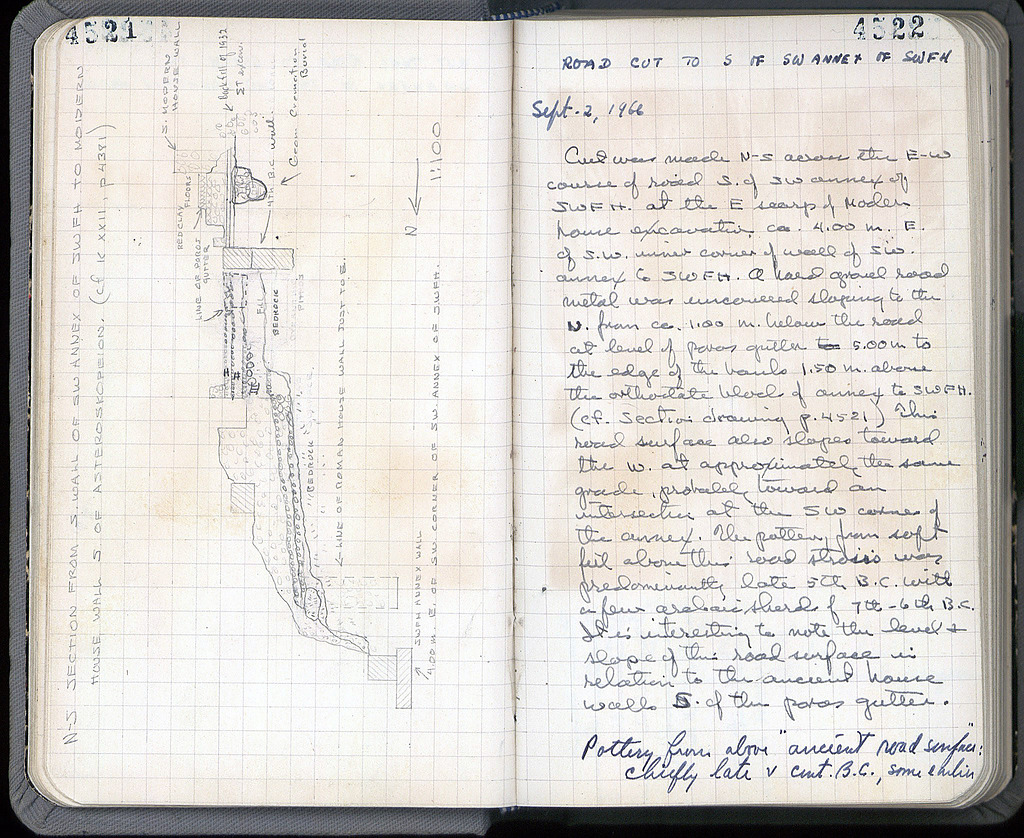 4521
N-S SECTION FROM S. WALL OF SW ANNEX OF SWFH TO MODERN
HOUSE WALL S OF ASTEROSKOPEION. (cf K XXII, p. 4381)
S. MODERN
HOUSE WALL
backfill of 1932
ST excav.
Geom Cremation
Burial
4th B.C. wall
RED CLAY
FLOORS
LINE OF POROS
GUTTER
FILL
BEDROCK
N
1:100
BEDROCK
LINE OF ROMAN HOUSE WALL JUST TO E.
SWFH ANNEX WALL
4.00 m. E. OF S.W. CORNER OF SW. ANNEX OF SWFH.
4522
ROAD CUT TO S OF SW ANNEX OF SWFH
Sept. 2, 1966
Cut was made N-S across the E-W
course of road S. of SW annex of
SWFH. at the E scarp of Modern
house excavation, ca. 4.00 m. E.
of S.W. inner corner of wall of SW.
annex to SWFH. A hard gravel road
metal was uncovered sloping to the
N. from ca. 1.00 m. below the road
at level of poros gutter to 5.00 m to
the edge of the bank 1.50 m. above
the orthostate block of annex to SWFH.
(cf. Section drawing p. 4521) This
road surface also slopes toward
the W. at approximately the same
grade, probably toward an
intersection at the SW corner of
the annex. The pottery from soft
fill above this road was
predominantly late 5th B.C. with
a few archaic sherds of 7th - 6th B.C.
It is interesting to note the level &
slope of this road surface in
relation to the ancient house
walls S. of the poros gutter.
Pottery from above "ancient road surface":
chiefly late v cent. B.C., some earlier